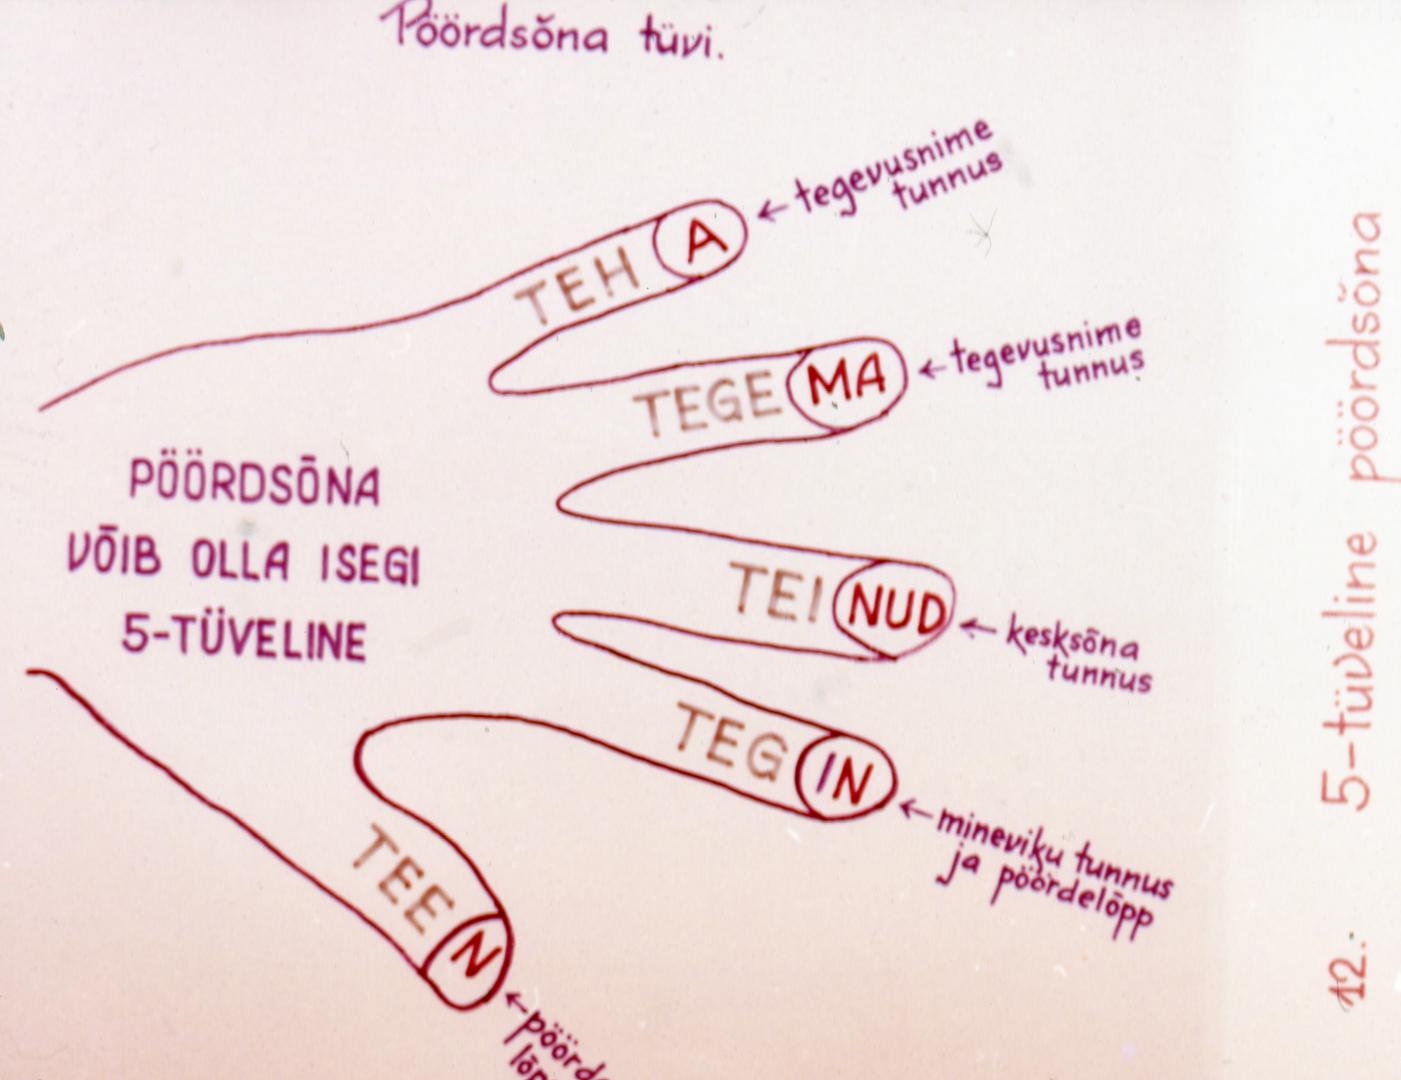 Pöördsõna tüvi.
TEHA
← tegevusnime
tunnus
TEGEMA
← tegevusnime
tunnus
PÖÖRDSÕNA
VÕIB OLLA ISEGI
5-TÜVELINE
TEINUD
← kesksõna
tunnus
TEGIN
← mineviku tunnus
ja pöördelõpp
TEEN
12. 5-tüveline pöördsõna